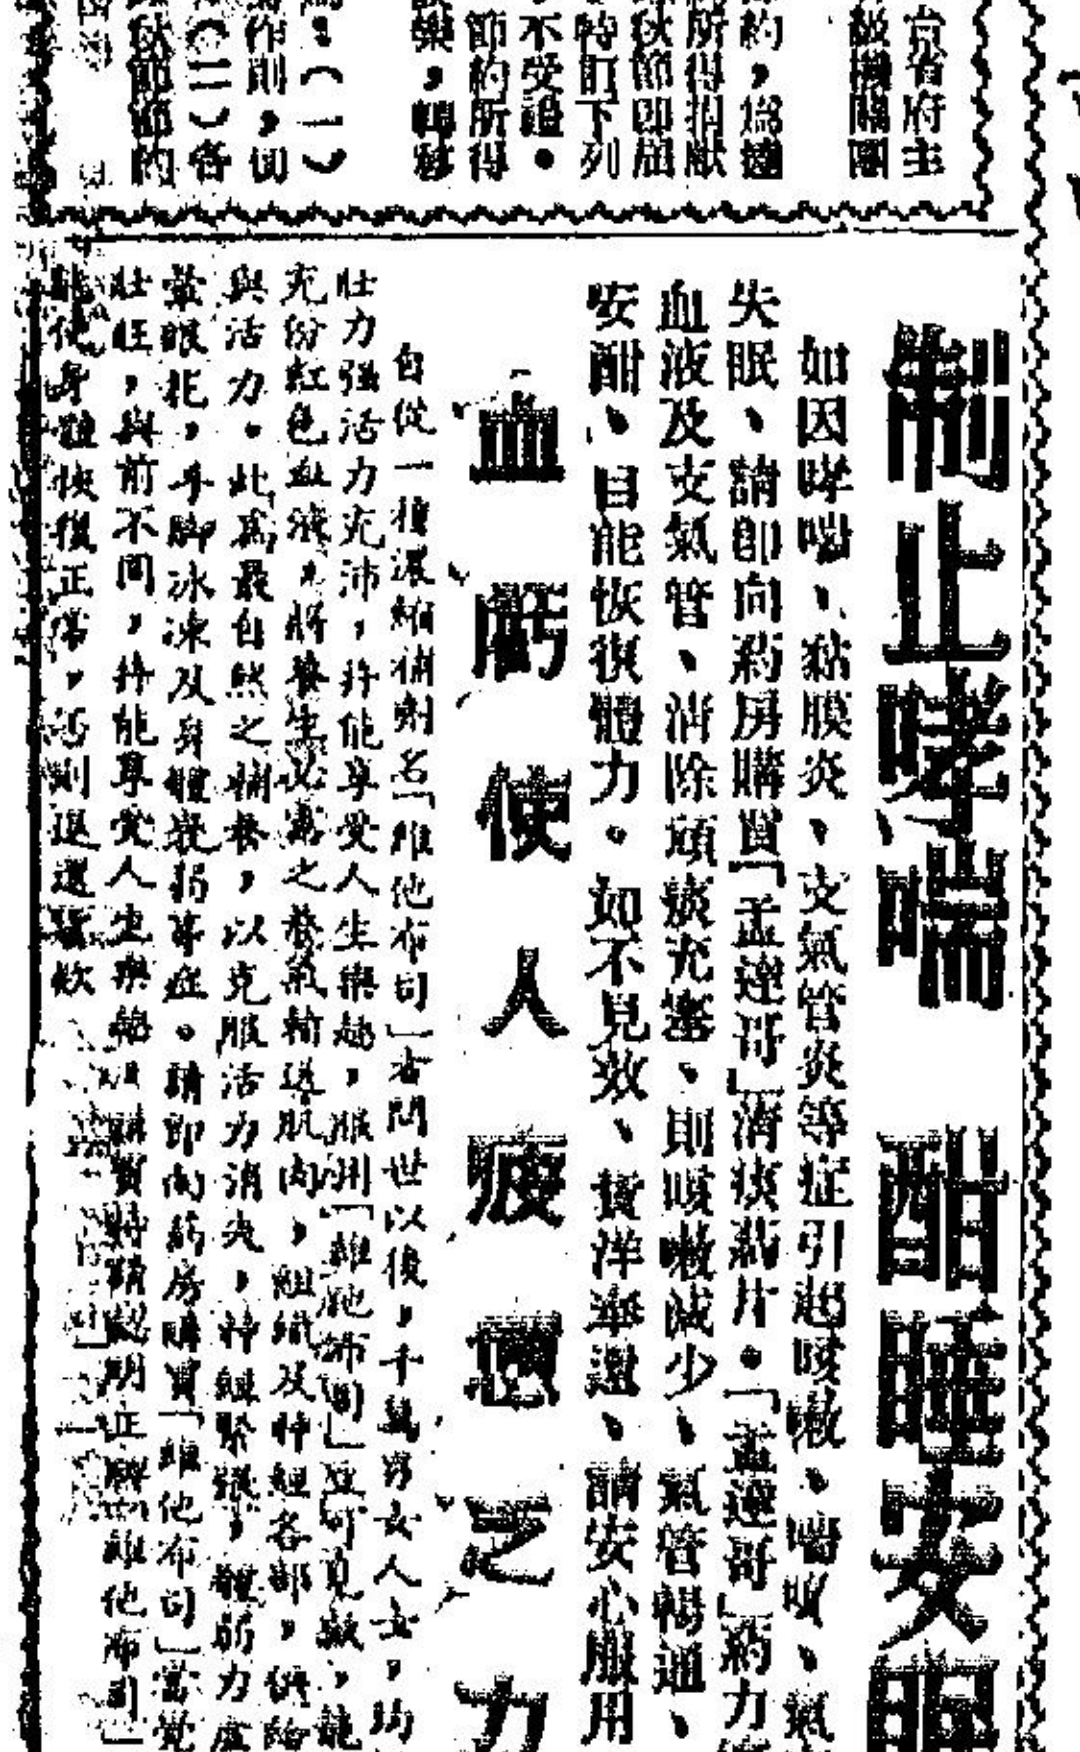 台省府主
級機關團
約，為達
所得捐獻
秋節即屆
特訂下列
不受邀。
節約所得
樂，轉移
（一）
作則，切
（二）各
秋節節約
制止哮喘 酣睡安眠
如因哮喘、黏膜炎、支氣管炎等症引起咳嗽、喘咳、氣
失眠、請即向葯房購買「孟達哥」清痰葯片。「孟達哥」葯力
血液及支氣管、清除頑痰充塞、則咳嗽減少、氣管暢通、
安酣、目能恢復體力。如不見效、貨洋奉還、請安心服用
血虧使人疲憊乏力
自從一種濃縮補劑名「維他布司」者問世以後，千萬男女人士，均
壯力强活力充沛，并能享受人生樂趣，服用「維他布司」立可見效，能
充份紅色血液，將養生必需之養氣輸送肌肉，組織及神經各部，供給
與活力。此爲最自然之補養，以克服活力消失，神經緊張，體弱力虛
暈眼花，手脚冰凍及身體衰弱等症。請即向葯房購買「維他布司」當覺
壯旺，與前不同，并能享受人生樂趣 購買時請認明正牌「維他布司」
能使身體恢復正常，否則退還原款